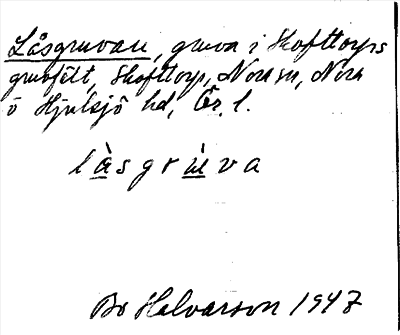 Låsgruvan, gruva i Skofttorps
gruvfält, Skofttorp, Nora sn, Nora
o Hjulsjö hd, Ör. l.
l à s g r ù v a
Bo Halvarson 1947